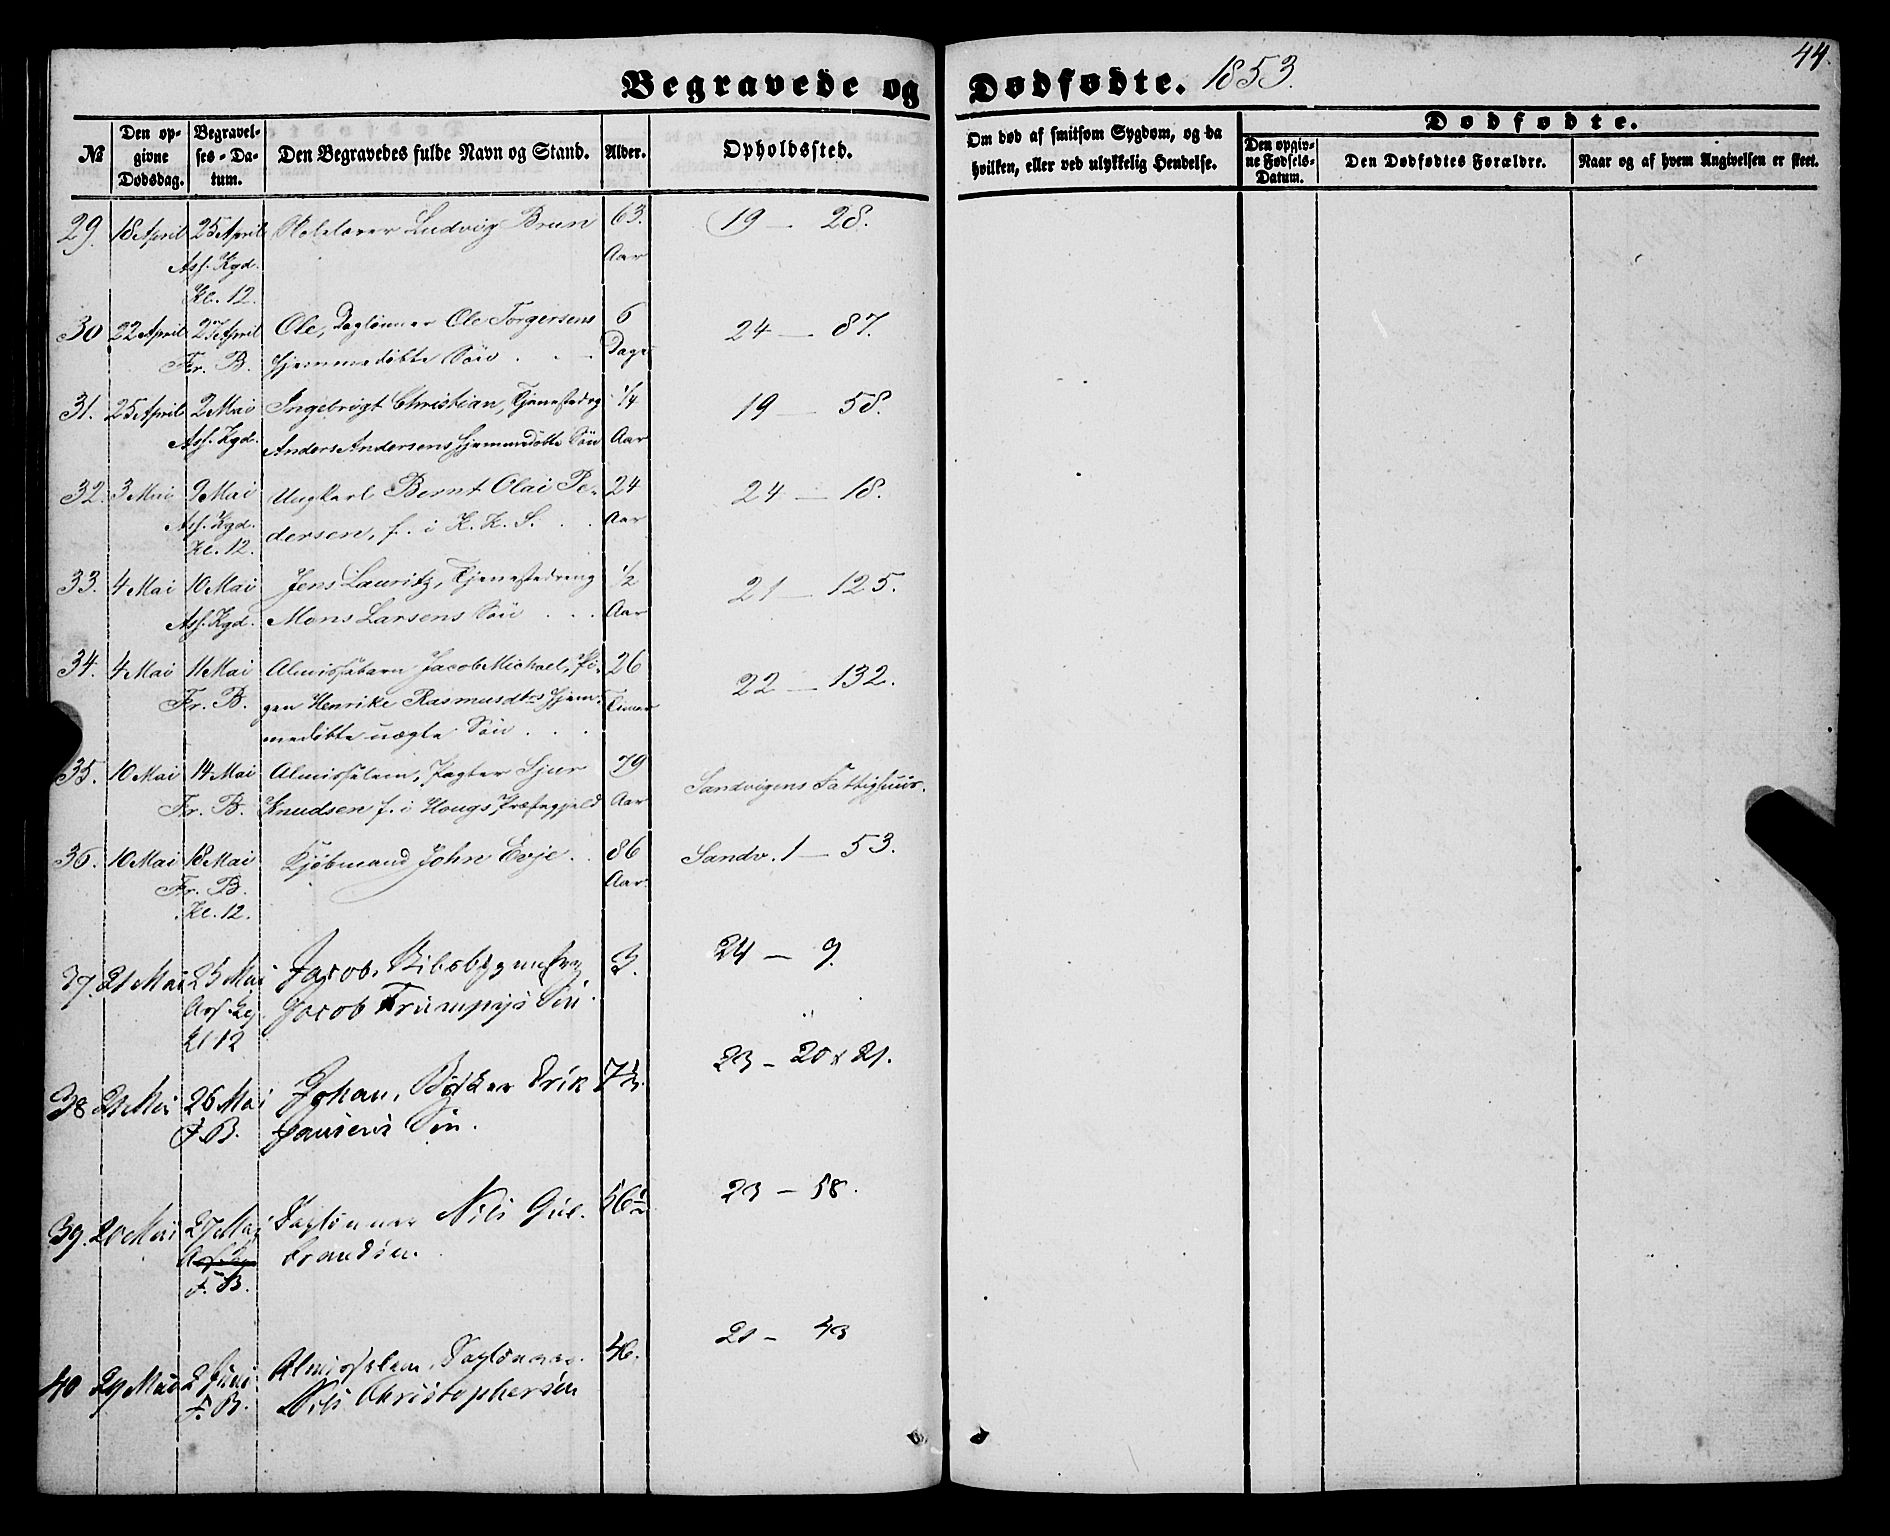 Begravede og Dødfødte. 1853.
44.
№
Den opgivne Dødsdag.
Begravelses-Datum.
Den Begravedes fulde Navn og Stand.
Alder.
Opholdssted.
Om død af smitsom Sygdom, og da hvilken, eller ved ulykkelig Hendelse.
Dødfødte.
Den opgivne Fødsels-Datum.
Den Dødfødtes Forældre.
Naar og af hvem Angivelsen er skeet.
29. 18 April 25 April Ludvig Brun 63. 19 – 28.
Ass. Kgd. Aar
Kl. 12.
30 22 April 27 April Ole, Daglønner Ole Torgersens 6 24 – 87.
Fr. B. hjemmedøbte Søn . . – Dage
31. 25 April 2 Mai Ingebrigt Christian, Tjenestedrg 1/4 19 – 58.
Ass. Kgd. Anders Andersens hjemmedøbte Søn Aar
32. 3 Mai 9 Mai Ungkarl Bernt Olai Pe- 24 24 – 18.
Ass. Kgd. dersen, f. i K. K. S. . . Aar
Kl. 12.
33. 4 Mai 10 Mai Jens Lauritz, Tjenestedreng 1/2 21 – 125.
Ass. Kgd. Mons Larsens Søn . . . Aar
34. 4 Mai 11 Mai Almissebarn Jacob Michael, Pi- 26 22 – 132.
Fr. B. gen Henrike Rasmusdtrs hjem- Timer
medøbte uægte Søn . . .
35. 10 Mai 14 Mai Almisselem, Pagter Sjur 79 Sandvigens Fattighuus.
Fr. B. Knudsen f. i Hougs Præstegjeld Aar
36. 10 Mai 18 Mai Kjøbmand John Evje . . 86 Sandv. 1 – 53.
Fr. B. Aar.
Kl. 12.
37. 21 Mai 25 Mai Jacob, 3. 24 – 9.
Ass. Kg. Jacob Trumpys Søn.
Kl 12
38 21 Mai 26 Mai Johan, Bødker Erik 7 23 – 20 & 21.
F. B. Hansens Søn.
39. 20 Mai 27 Mai Daglønner Nils Gul- 56 1/2 23 – 58.
brandsen.
F. B.
40 29 Mai 2 Juni Almisselem, Daglønner 46. 21 – 43
F. B. Nils Christophersen